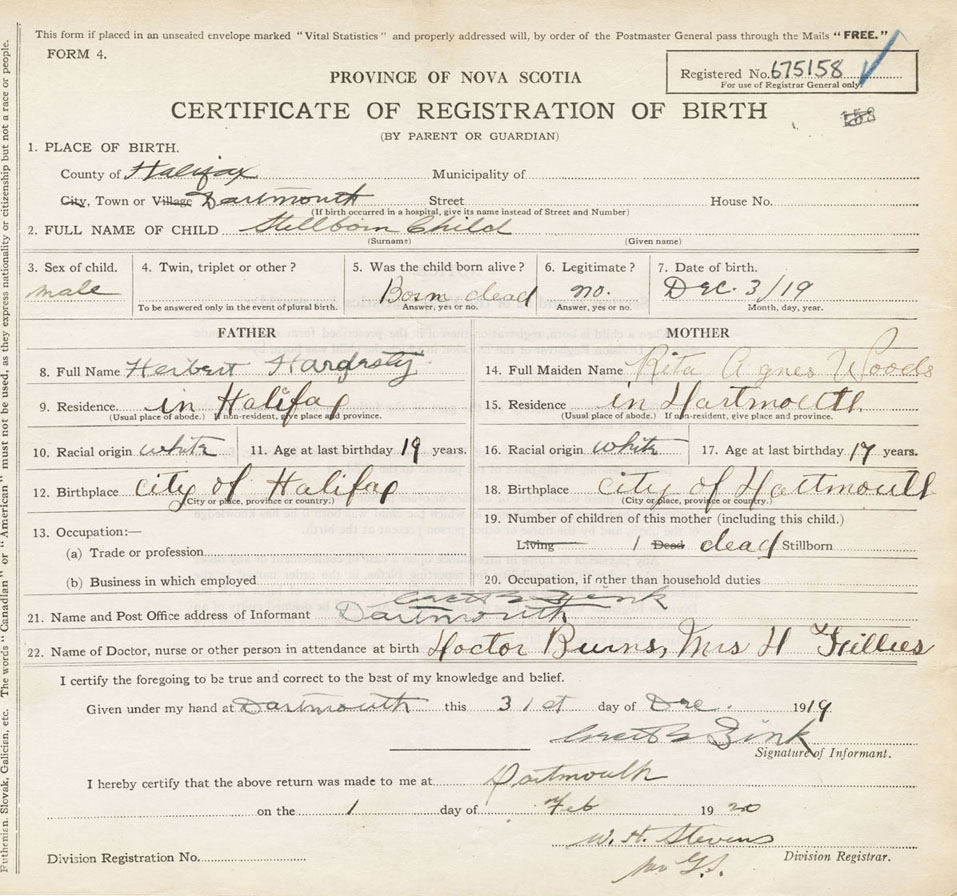 This form if placed in an unsealed envelope marked "Vital Statistics" and properly addressed will, by order of the Postmaster General pass through the Mails "FREE."
FORM 4.
PROVINCE OF NOVA SCOTIA
Registered No. 675158
For use of Registrar General only.
CERTIFICATE OF REGISTRATION OF BIRTH
158
(BY PARENT OR GUARDIAN)
1. PLACE OF BIRTH.
County of Halifax Municipality of
City, Town or Village Dartmouth Street House No.
(If birth occurred in a hospital, give its name instead of Street and Number)
2. FULL NAME OF CHILD Stillborn Child
(Surname) (Given name)
3. Sex of child. 4. Twin, triplet or other? 5. Was the child born alive? 6. Legitimate? 7. Date of birth.
male Born dead no. Dec. 3/19
To be answered only in the event of plural birth. Answer, yes or no. Answer, yes or no. Month, day, year.
FATHER MOTHER
8. Full Name Herbert Hargesty 14. Full Maiden Name Rita Agnes Woods
9. Residence in Halifax 15. Residence in Dartmouth
(Usual place of abode.) If non-resident, give place and province. (Usual place of abode.) If non-resident, give place and province.
10. Racial origin white 11. Age at last birthday 19 years. 16. Racial origin white 17. Age at last birthday 17 years.
12. Birthplace city of Halifax 18. Birthplace city of Dartmouth
(City or place, province or country.) (City or place, province or country.)
13. Occupation:— 19. Number of children of this mother (including this child.)
(a) Trade or profession Living 1 Dead dead Stillborn
(b) Business in which employed 20. Occupation, if other than household duties
Zink
21. Name and Post Office address of Informant Dartmouth
22. Name of Doctor, nurse or other person in attendance at birth Doctor Burns, Mrs H Gillies
I certify the foregoing to be true and correct to the best of my knowledge and belief.
Given under my hand at Dartmouth this 31st day of Dec. 1919
Zink
Signature of Informant.
I hereby certify that the above return was made to me at Dartmouth
on the 1 day of Feb 1920
W. H. Stevens
Division Registration No. Division Registrar.
Ruthenian, Slovak, Galician, etc. The words "Canadian" or "American" must not be used, as they express nationality or citizenship but not a race or people.